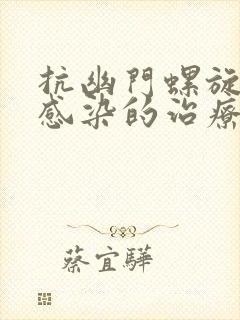 抗幽門螺旋
感染的治療
蔡宜驊